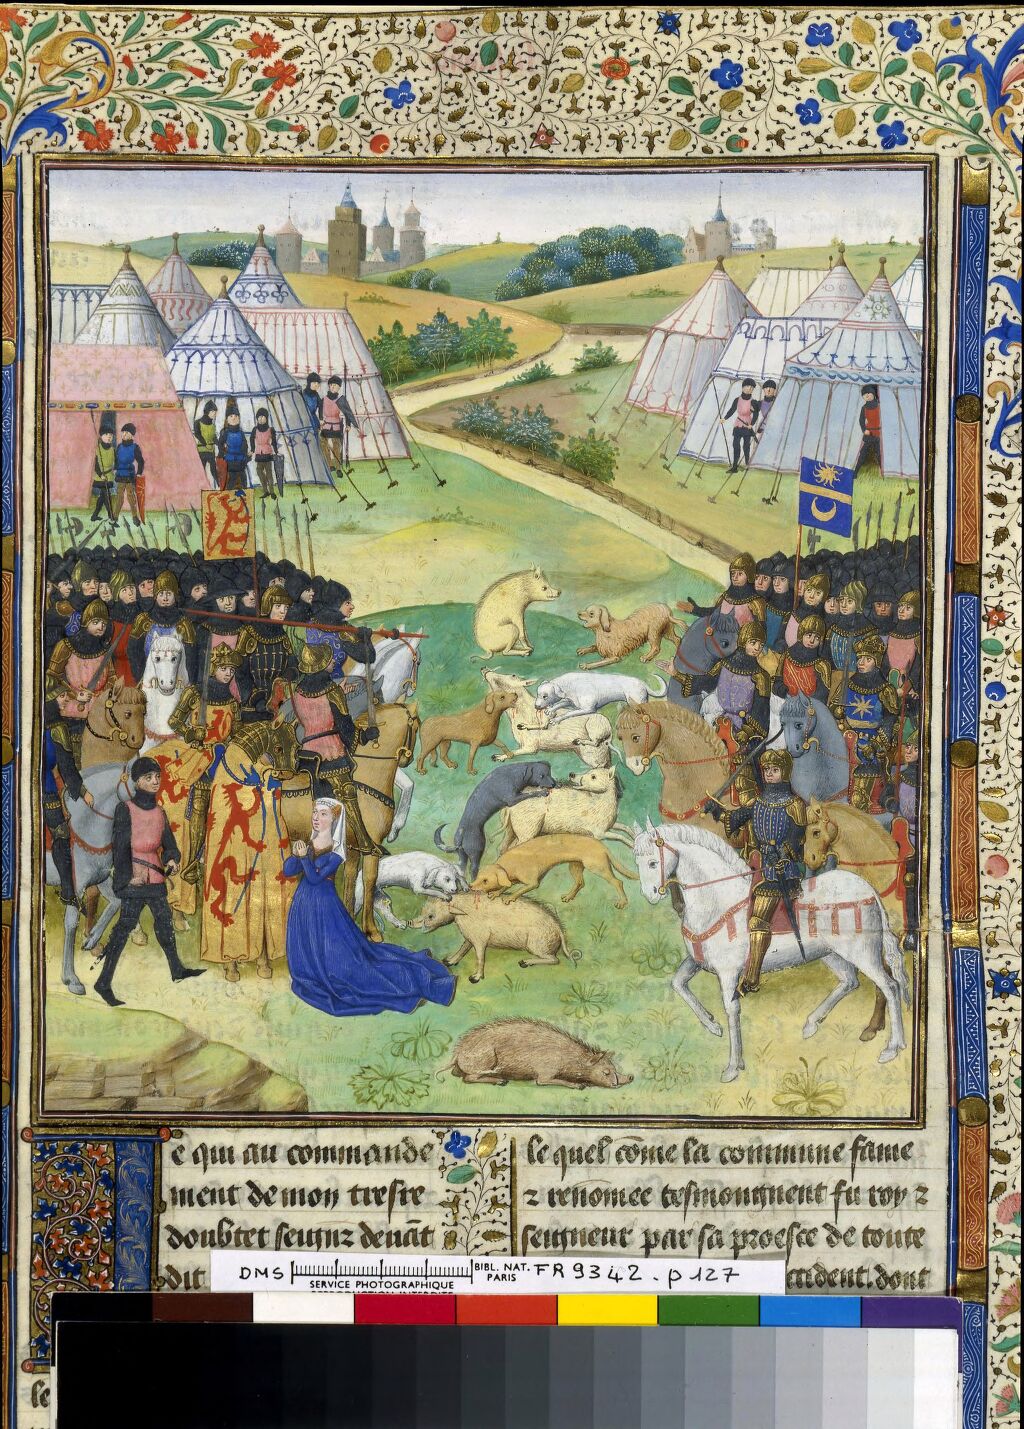 e qui au commande
ment de mon tresre
doubtet seignr devāt
dit
le
le quel cōme la commune fame
⁊ renomee tesmoingnent fu roy ⁊
seigneur par sa proesce de toute
ccident. dont
DMS
SERVICE PHOTOGRAPHIQUE
REPRODUCTION INTERDITE
BIBL. NAT.
PARIS
FR 9342. p 127